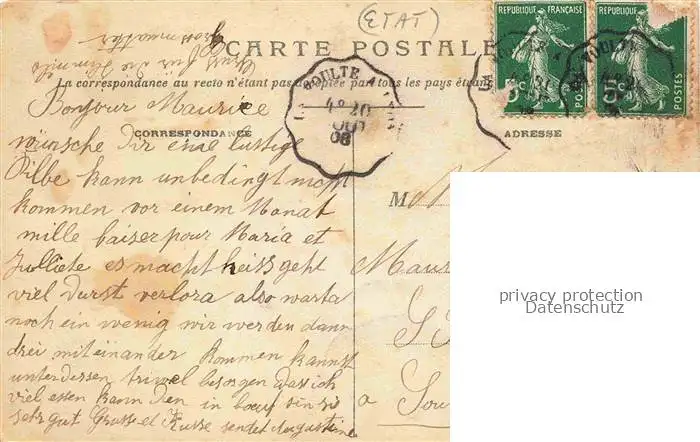 (ETAT)
CARTE POSTALE
La correspondance au recto n'était pas acceptée par tous les pays étrangers
RÉPUBLIQUE FRANÇAISE
RÉPUBLIQUE
5c
POSTES
5c
POSTES
BOULTE
4e 20
08
CORRESPONDANCE
ADRESSE
Bonjour Maurice
wünsche dir eine lustige
kann unbedingt nicht
kommen vor einem Monat
mille baiser pour Maria et
Julliete es macht heiss geht
viel durst verlora also warta
noch ein wenig wir werden dann
drei miteinander kommen kannst
unterdessen besorgen was ich
viel essen kann den in boeuf sin si
sehr gut Grusse et Kusse sendet Augustine
M
Maur
a Sou
privacy protection
Datenschutz